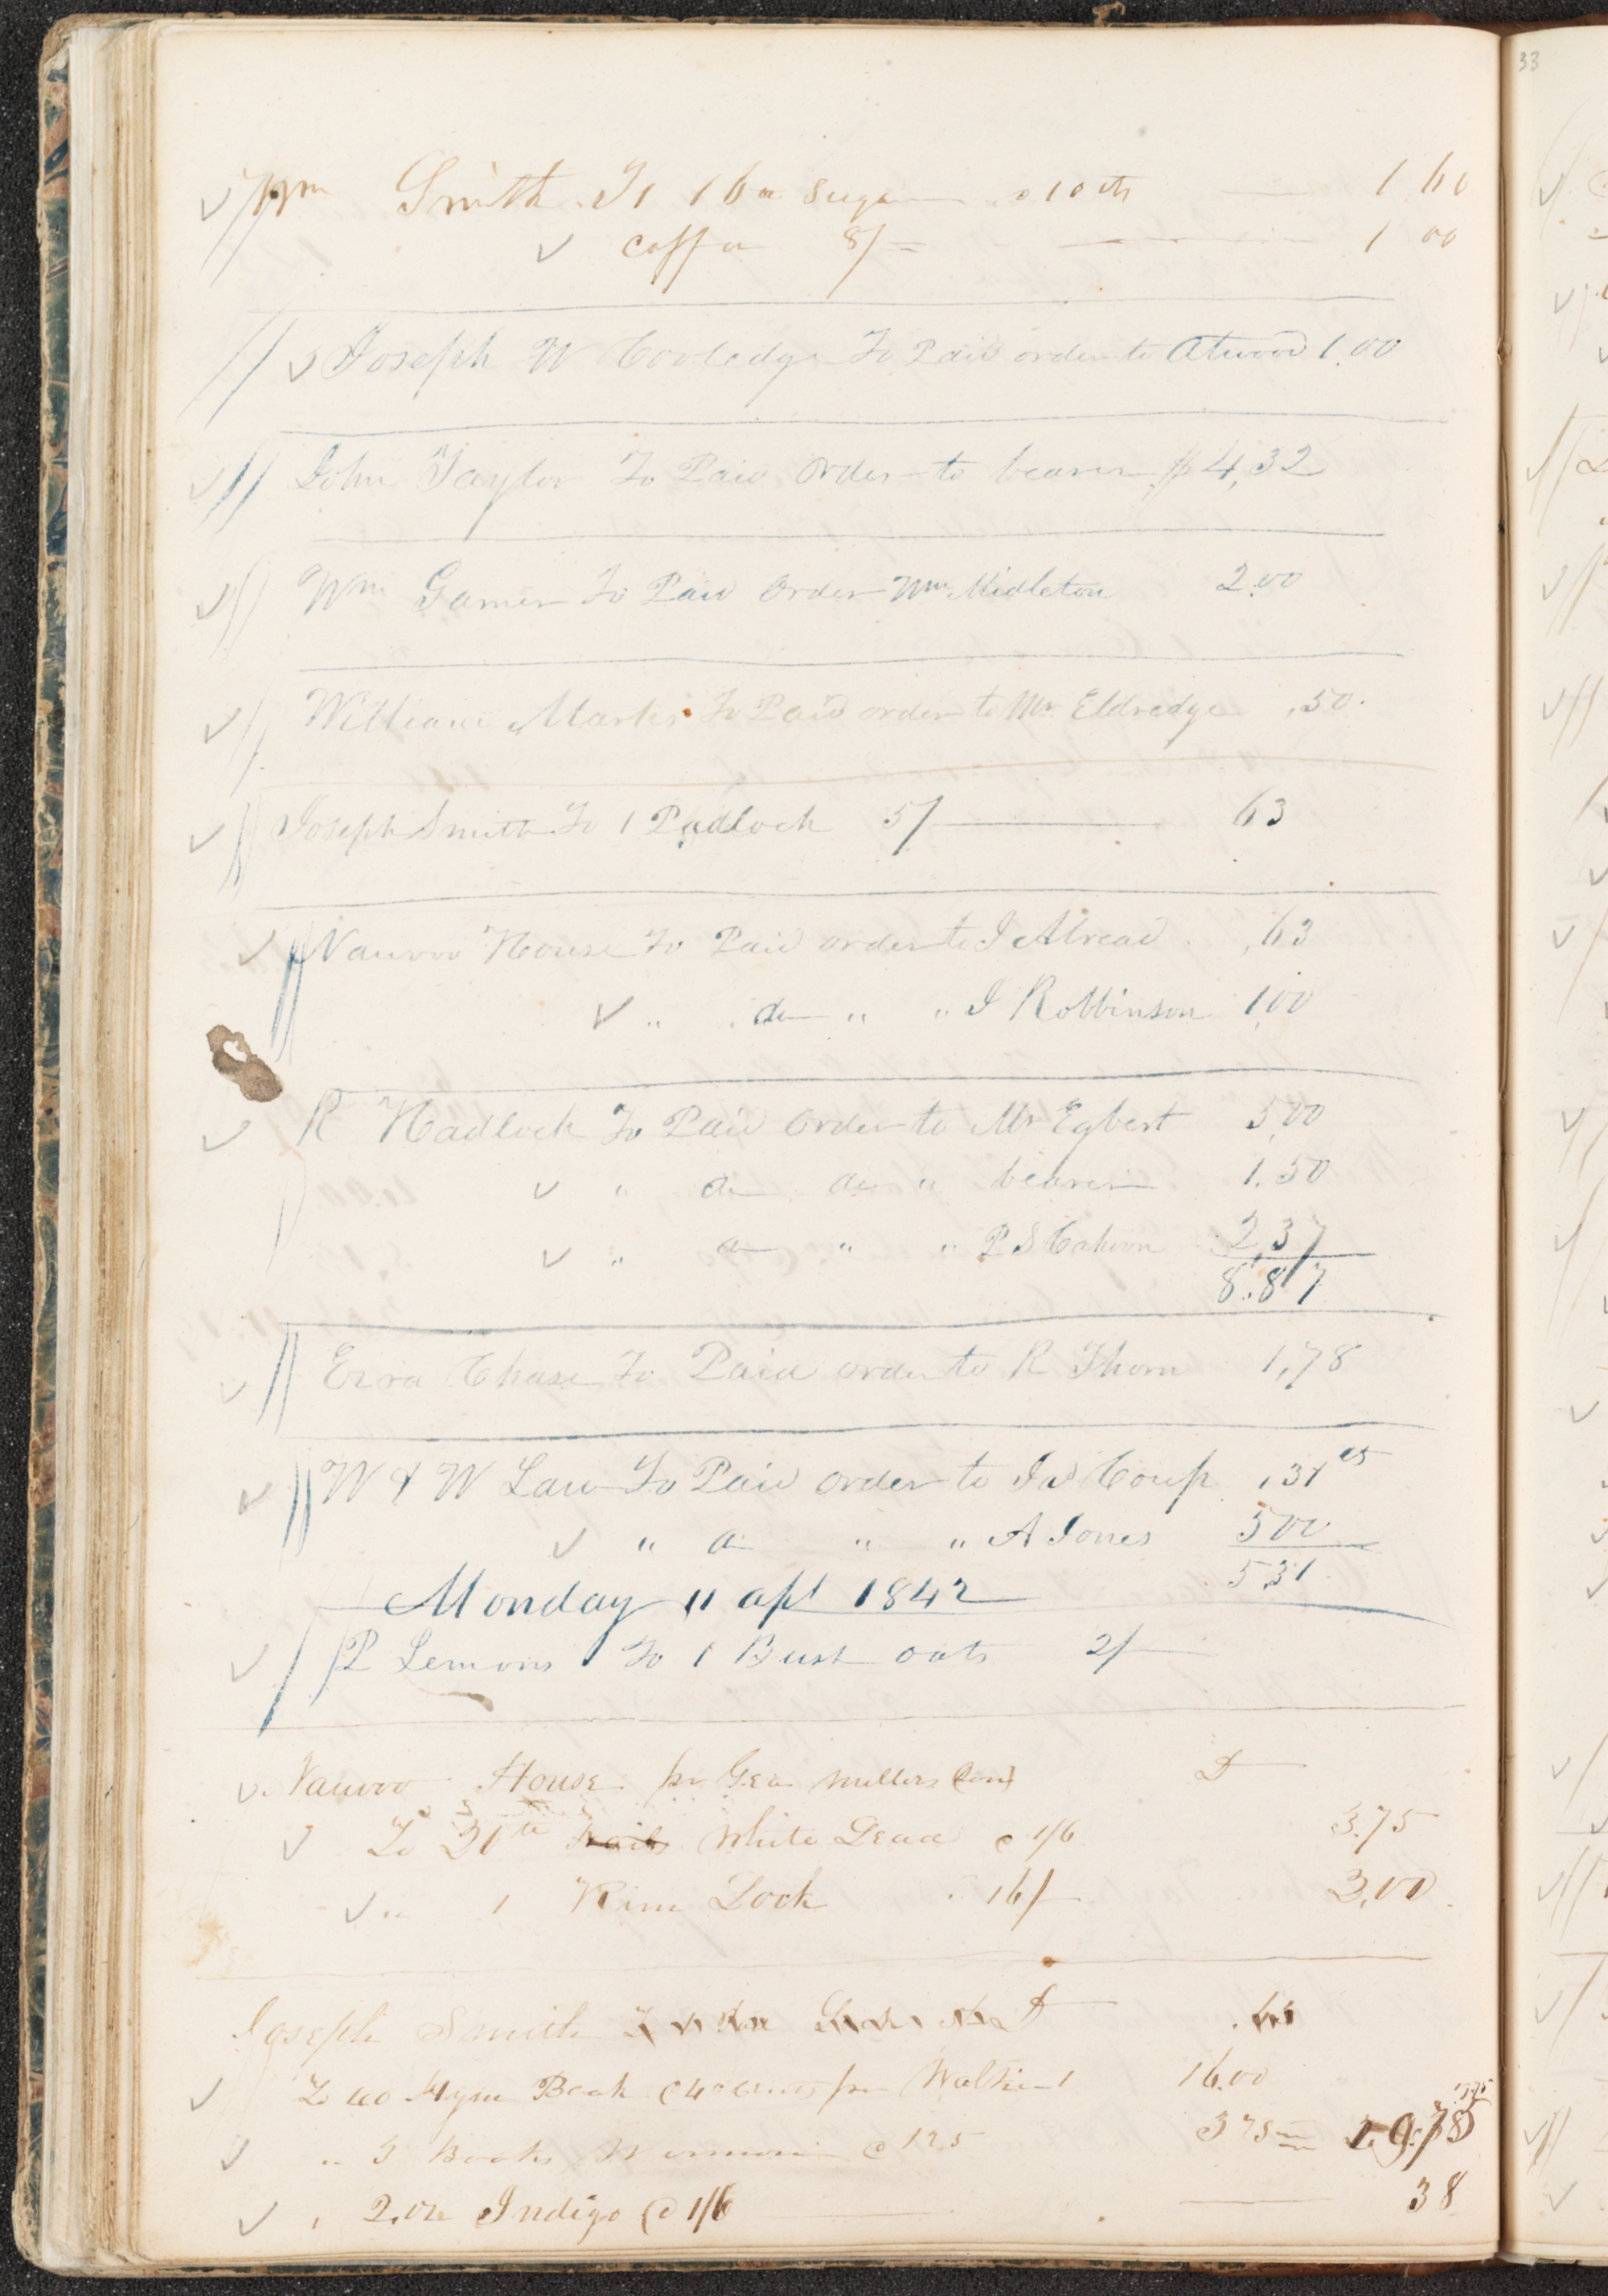 33
Wm Smith To 16 Sugar @ 10 cts 1 60
coffee 8/ 1 00
Joseph W Cooledge To Paid order to Atwood 1.00
John Taylor To Paid Order to bearer $4,32
Wm Garner To Paid Order Wm Midleton 2.00
William Marks To Paid order to Mr Eldredge ,50
Joseph Smith To 1 Padlock 5/ 63
Nauvoo House To Paid order to J Allread ,63
" do " " J Robbinson 1,00
R Hadlock To Paid Order to Mr Egbert 5,00
" do do " bearer 1.50
" do " " P S Cahoon 2,37
8.87
Ezra Chase To Paid order to R Thorn 1,78
W & W Law To Paid order to Coup ,31
" do " " A Jones 500
5 31
Monday 11 apl 1842
P Lemons To 1 Bush oats 2/
Nauvoo House pr Geo Millers D
To White Lead @ 1/6 3.75
" 1 Rim Lock 16/ 3,00
Joseph Smith D
To 40 Hymn Book @ 40 cents pr 16.00
" 3 Books Mormon @ 125 3 75 19.75
" 2 oz Indigo @ 1/6 38